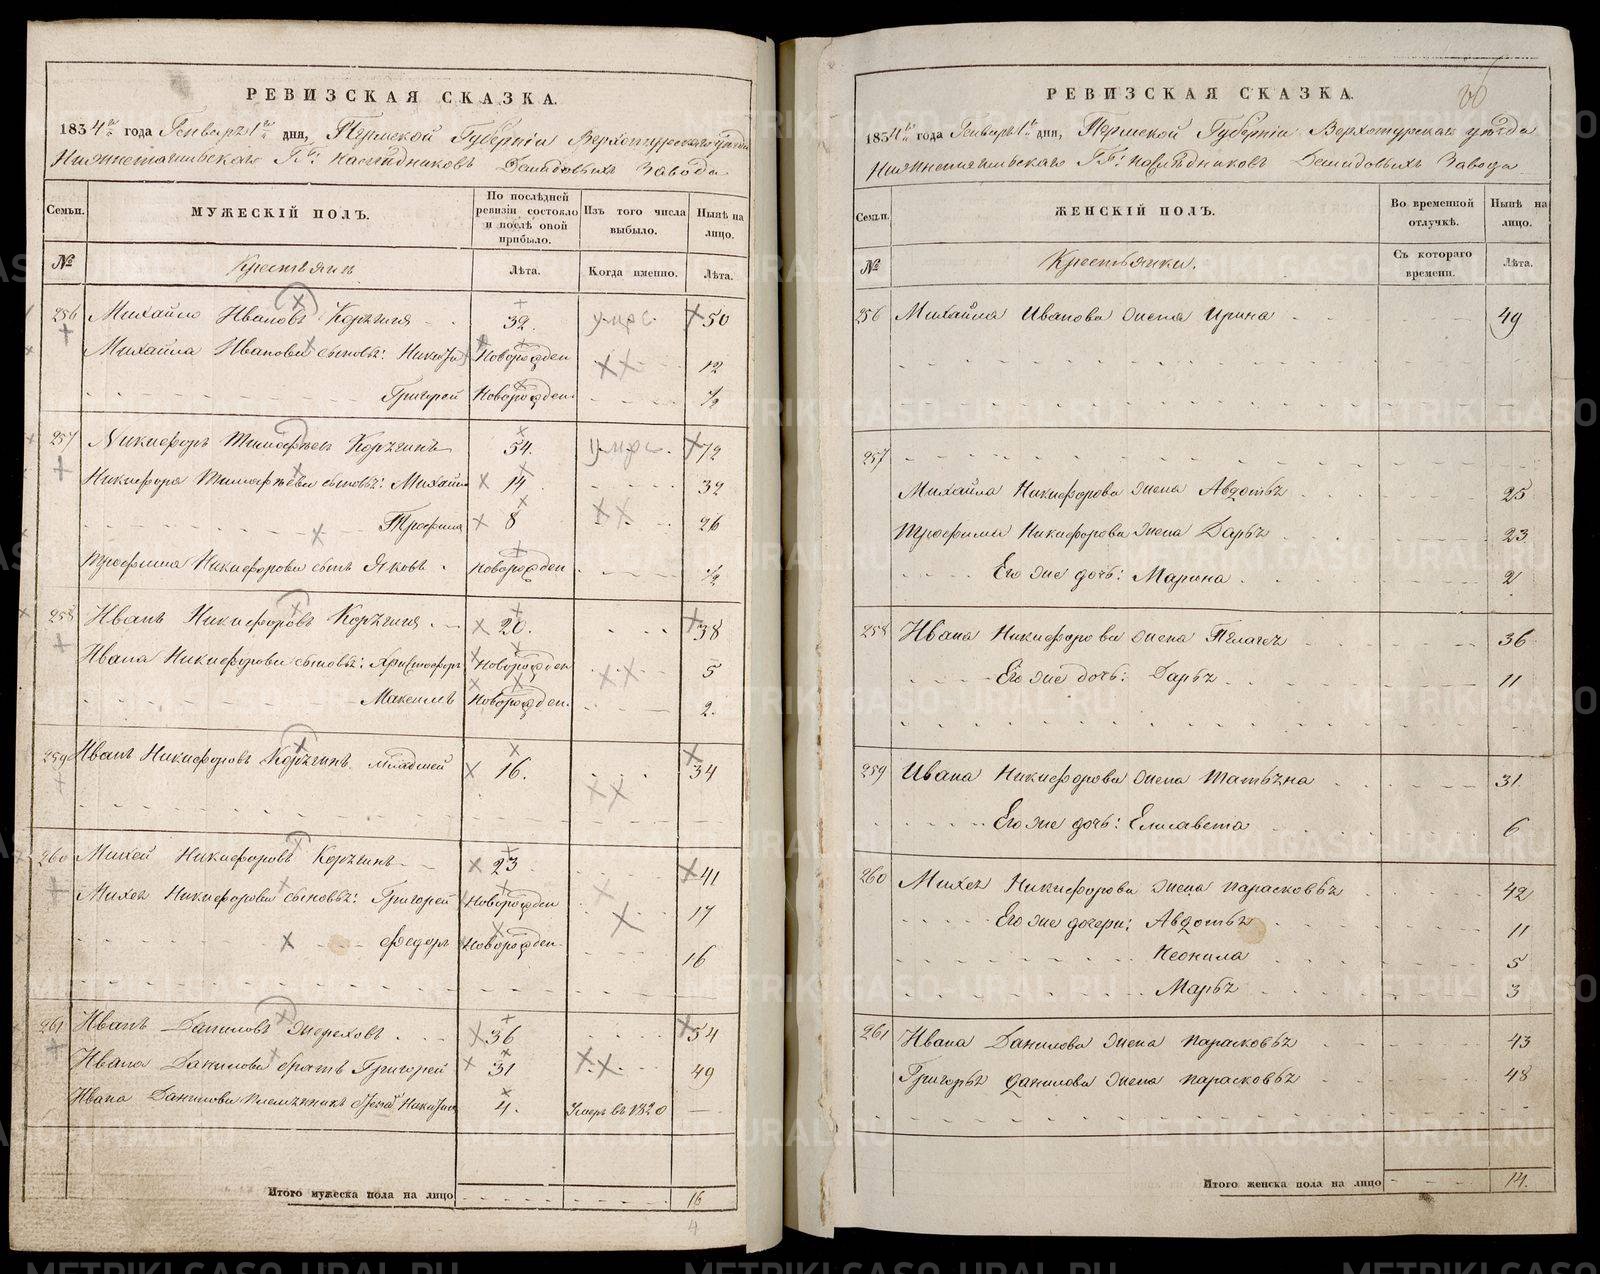 РЕВИЗСКАЯ СКАЗКА.
1834го года Генваря 1го дня, Пермской Губерніи Верхотурскаго уезда
Нижнетагильскаго ГГ: наследниковъ Демидовыхъ Завода
Семьи. МУЖЕСКІЙ ПОЛЪ. По послѣдней ревизіи состояло и послѣ оной прибыло. Изъ того числа выбыло. Нынѣ на лицо.
№ Крестьянъ Лѣта. Когда именно. Лѣта.
256 Михайло Ивановъ 32. умре. 50
Михайла Иванова сыновья: Новорожден 12
Григорей Новорожден. 1/2
257 Никифоръ 54. умре. 72
Никифора сыновья: Михайло 14 32
Трофимъ 8 26
Трофима Никифорова сынъ Яковъ Новорожден 1/2
258 Иванъ Никифоровъ 20. 38
Ивана Никифорова сыновья: Новорожден 5
Максимъ Новорожден. 2.
259 Иванъ Никифоровъ младшей 16. 34
260 Михей Никифоровъ 23 41
Михея Никифорова сыновья: Григорей Новорожден 17
Федоръ Новорожден. 16
261 Иванъ Даниловъ 36 54
Ивана Данилова братъ Григорей 31 49
Ивана Данилова племянникъ 4. Умеръ въ 1820
Итого мужеска пола на лицо 16
4
РЕВИЗСКАЯ СКАЗКА.
1834го года Генваря 1го дня, Пермской Губерніи Верхотурскаго уезда
Нижнетагильскаго ГГ: наследниковъ Демидовыхъ Завода
Семьи. ЖЕНСКІЙ ПОЛЪ. Во временной отлучкѣ. Нынѣ на лицо.
№ Крестьянки. Съ котораго времени. Лѣта.
256 Михайла Иванова жена Ирина 49
257
Михайла Никифорова жена Авдотья 25
Трофима Никифорова жена Дарья 23
Его же дочь: Марина 2
258 Ивана Никифорова жена Пелагея 36
Его же дочь: Дарья 11
259 Ивана Никифорова жена Татьяна 31.
Его же дочь: Елисавета 6
260 Михея Никифорова жена Парасковья 42
Его же дочери: Авдотья 11
Неонила 5
Марья 3
261 Ивана Данилова жена Парасковья 43
Григорья Данилова жена Парасковья 48
Итого женска пола на лицо 14.
METRIKI.GASO-URAL.RU